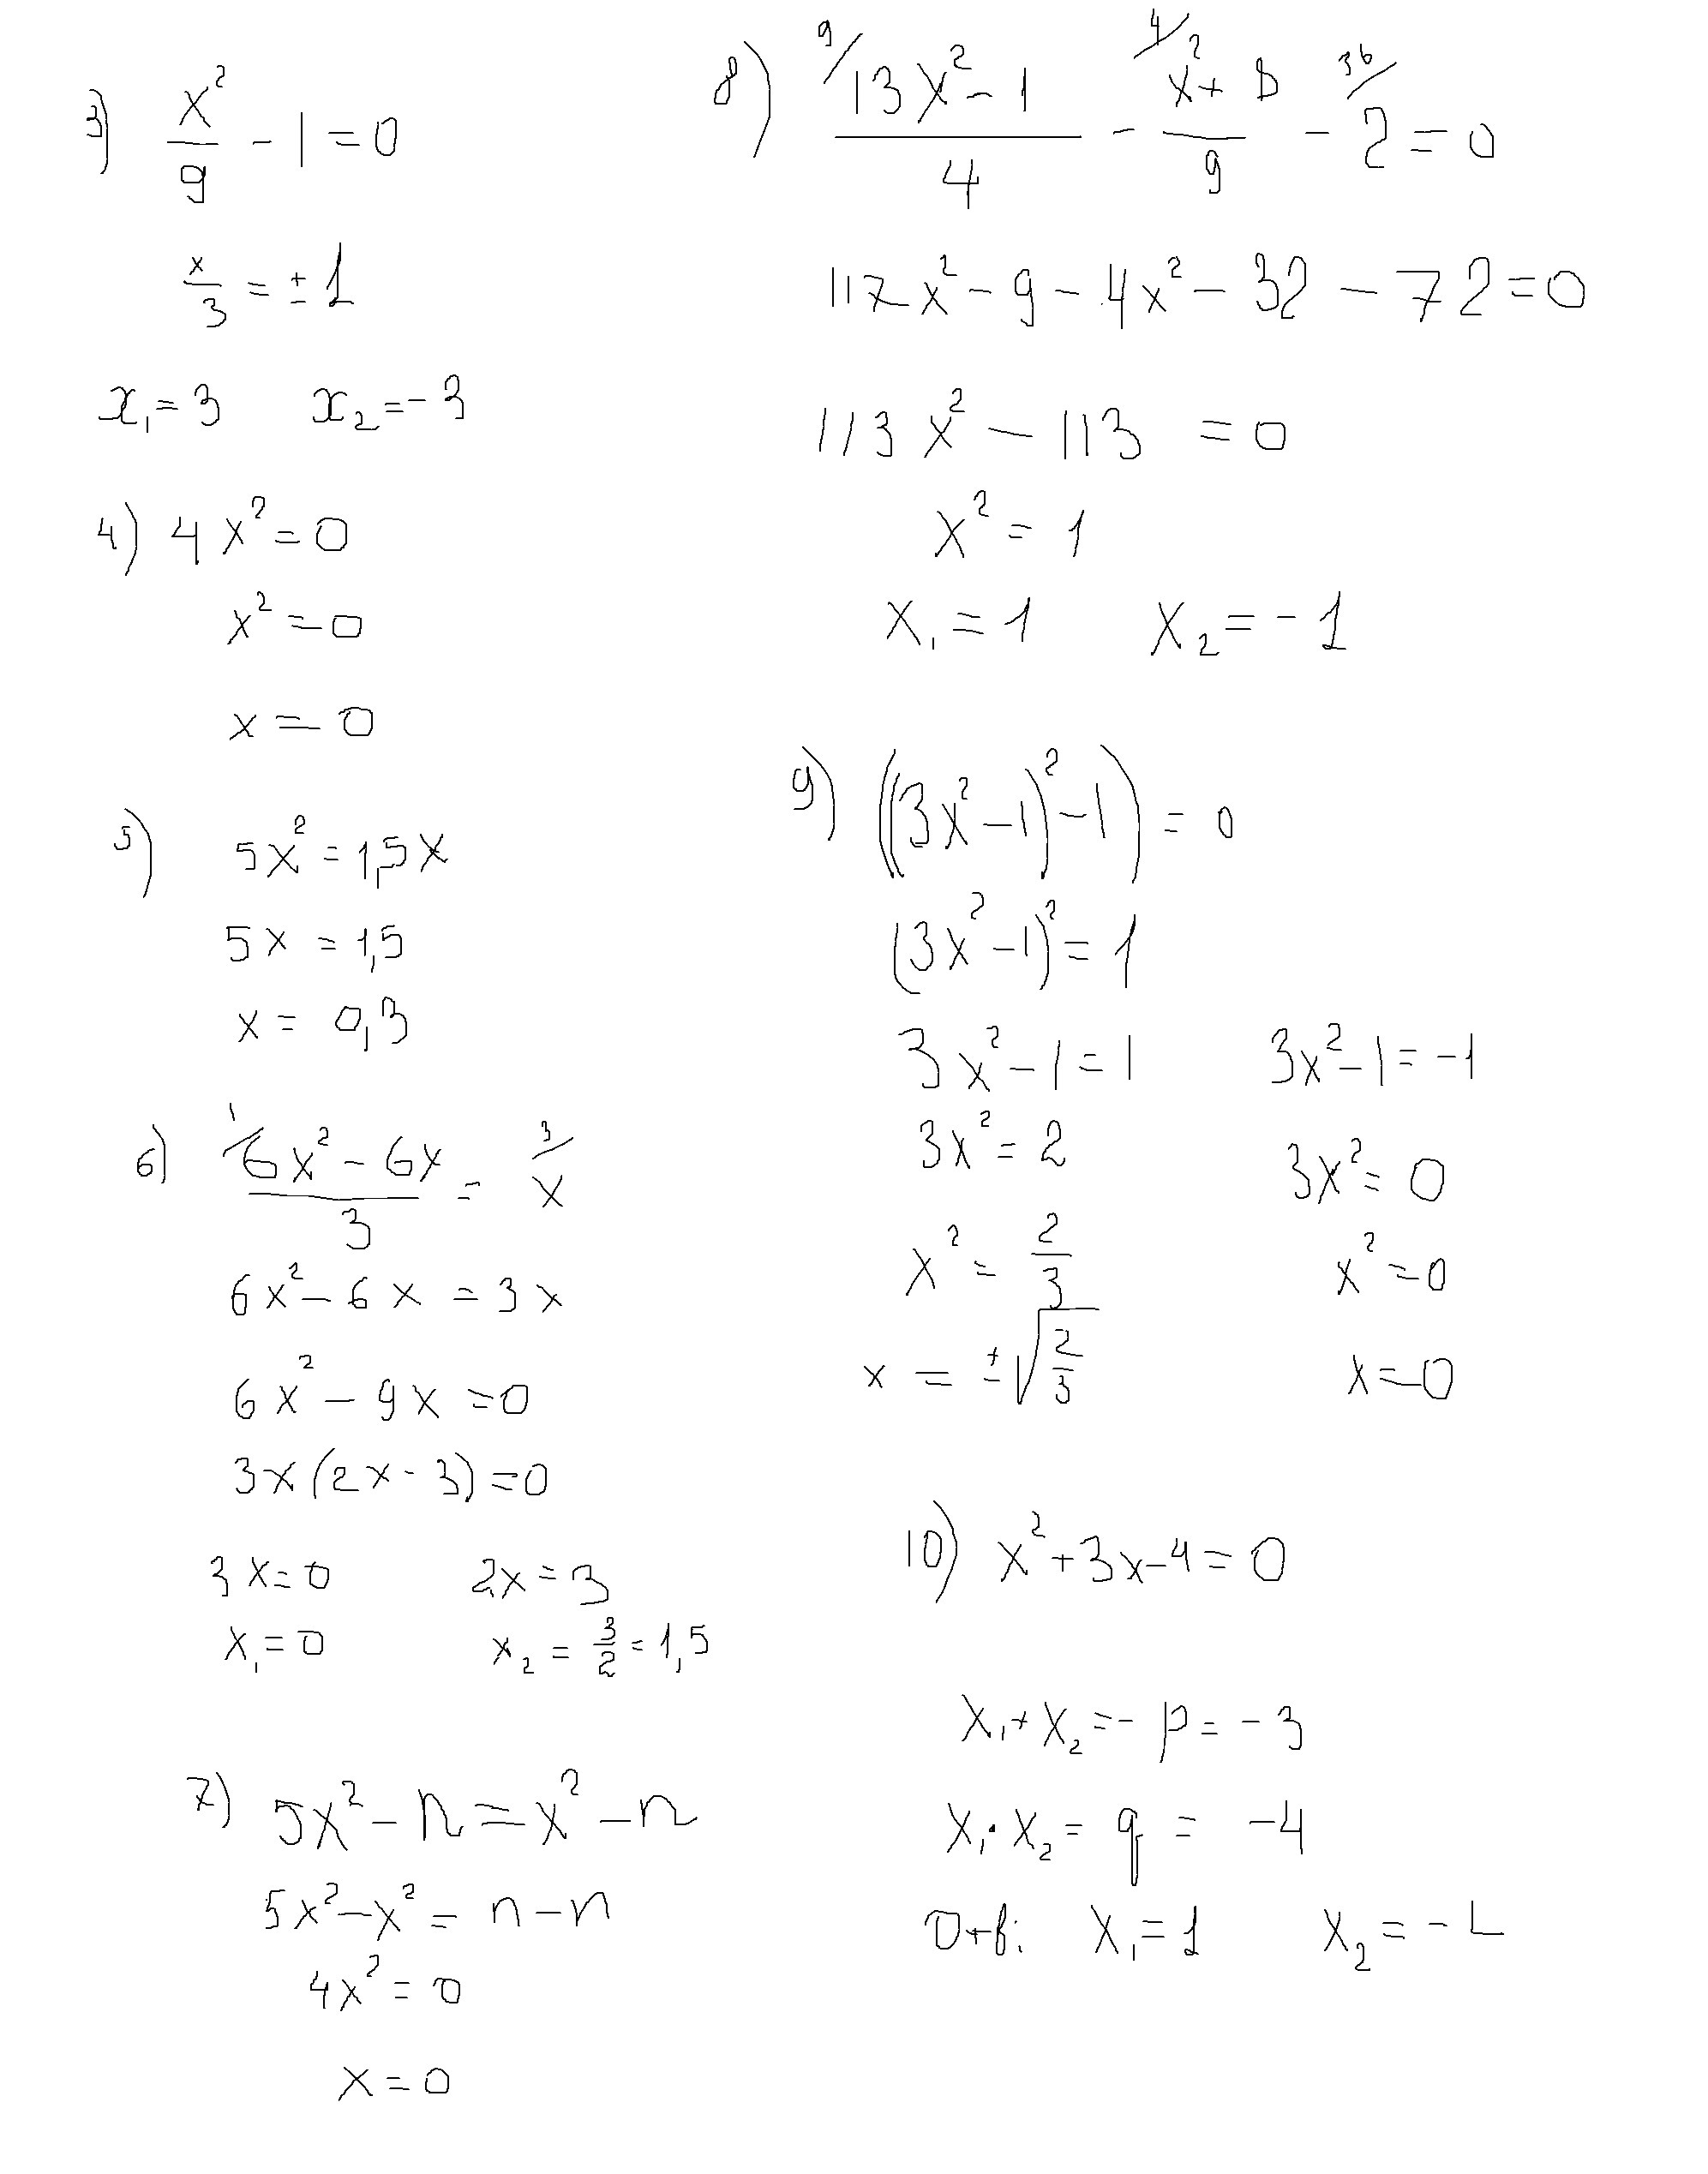 3) x²/9 - 1 = 0
x/3 = ± 1
x₁ = 3 x₂ = -3
4) 4x² = 0
x² = 0
x = 0
5) 5x² = 1,5x
5x = 1,5
x = 0,3
6) 1/ (6x² - 6x)/3 = 3/ x
6x² - 6x = 3x
6x² - 9x = 0
3x(2x - 3) = 0
3x = 0 2x = 3
x₁ = 0 x₂ = 3/2 = 1,5
7) 5x² - n = x² - n
5x² - x² = n - n
4x² = 0
x = 0
8) 9/ (13x² - 1)/4 - 4/ (x² + 8)/9 - 36/ 2 = 0
117x² - 9 - 4x² - 32 - 72 = 0
113x² - 113 = 0
x² = 1
x₁ = 1 x₂ = -1
9) ((3x² - 1)² - 1) = 0
(3x² - 1)² = 1
3x² - 1 = 1 3x² - 1 = -1
3x² = 2 3x² = 0
x² = 2/3 x² = 0
x = ± √(2/3) x = 0
10) x² + 3x - 4 = 0
x₁ + x₂ = - p = - 3
x₁ · x₂ = q = -4
Отв: x₁ = 1 x₂ = - 4